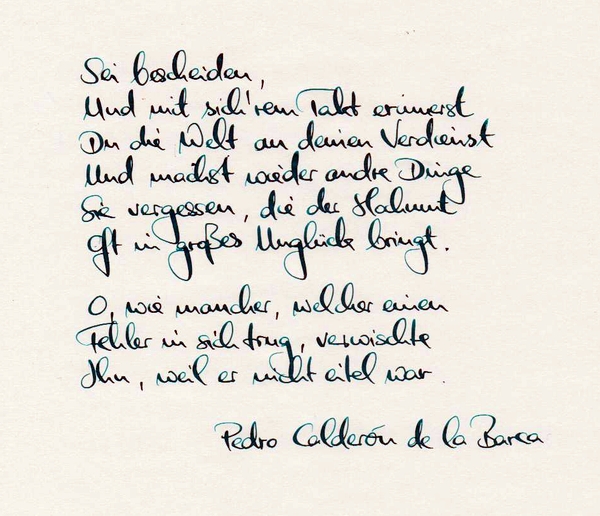 Sei bescheiden,
Und mit sich'rem Takt erinnerst
Du die Welt an deinen Verdienst
Und machst wieder andre Dinge
Sie vergessen, die der Hochmut
Oft in großes Unglück bringt.
O, wie mancher, welcher einen
Fehler in sich trug, verwischte
Ihn, weil er nicht eitel war.
Pedro Calderón de la Barca